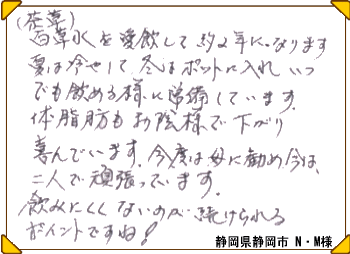 (茶草)
百草水を愛飲して約2年になります
夏は冷やして、冬はポットに入れいつ
でも飲める様に常備しています。
体脂肪もお陰様で下がり
喜んでいます。今度は母に勧め今は、
二人で頑張っています。
飲みにくくないのが続けられる
ポイントですね!
静岡県静岡市 N・M様